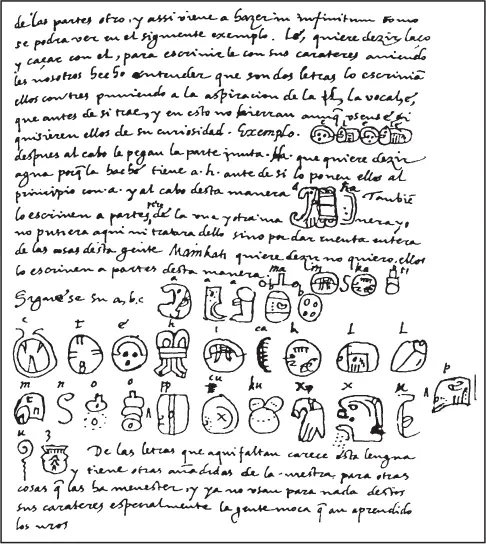 de las partes otro, y assi viene a hazer in infinitum como
se podra ver en el siguiente exemplo. Lé, quiere dezir laço
y caçar con el, para escrivirle con sus carateres aviendo
les nosotros hecho entender que son dos letras lo escrivian
ellos con tres puniendo a la aspiracion de la l, la vocal é,
que antes de si trae, y en esto no hierran aunq usense si
quisieren ellos de su curiosidad. Exemplo.
despues al cabo le pegan la parte junta. Ha. que quiere dezir
agua porq la hache tiene a. h. ante de si lo ponen ellos al
principio con a. y al cabo desta manera a ha Tambie
lo escriven a partes, de la una y otra ma nera, yo
no pusiera aqui ni tratara dello sino por dar cuenta entera
de las cosas desta gente Mamkati quiere dezir no quiero, ellos
lo escriven a partes desta manera. ma i n ka ti
Siguese su a, b, c a a a b b
c t é h i ca k l l
m n o o pp p cu ku x x u
u z De las letras que aqui faltan carece esta lengua
y tiene otras añadidas de la nuestra para otras
cosas q las ha menester, y ya no usan para nada destos
sus carateres especialmente la gente moça q an aprendido
los nros